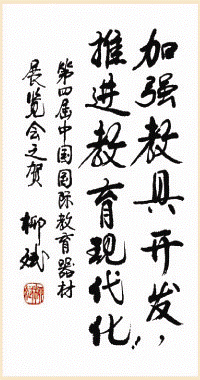 加强教具开发，
推进教育现代化！
第四届中国国际教育器材
展览会之贺
柳斌